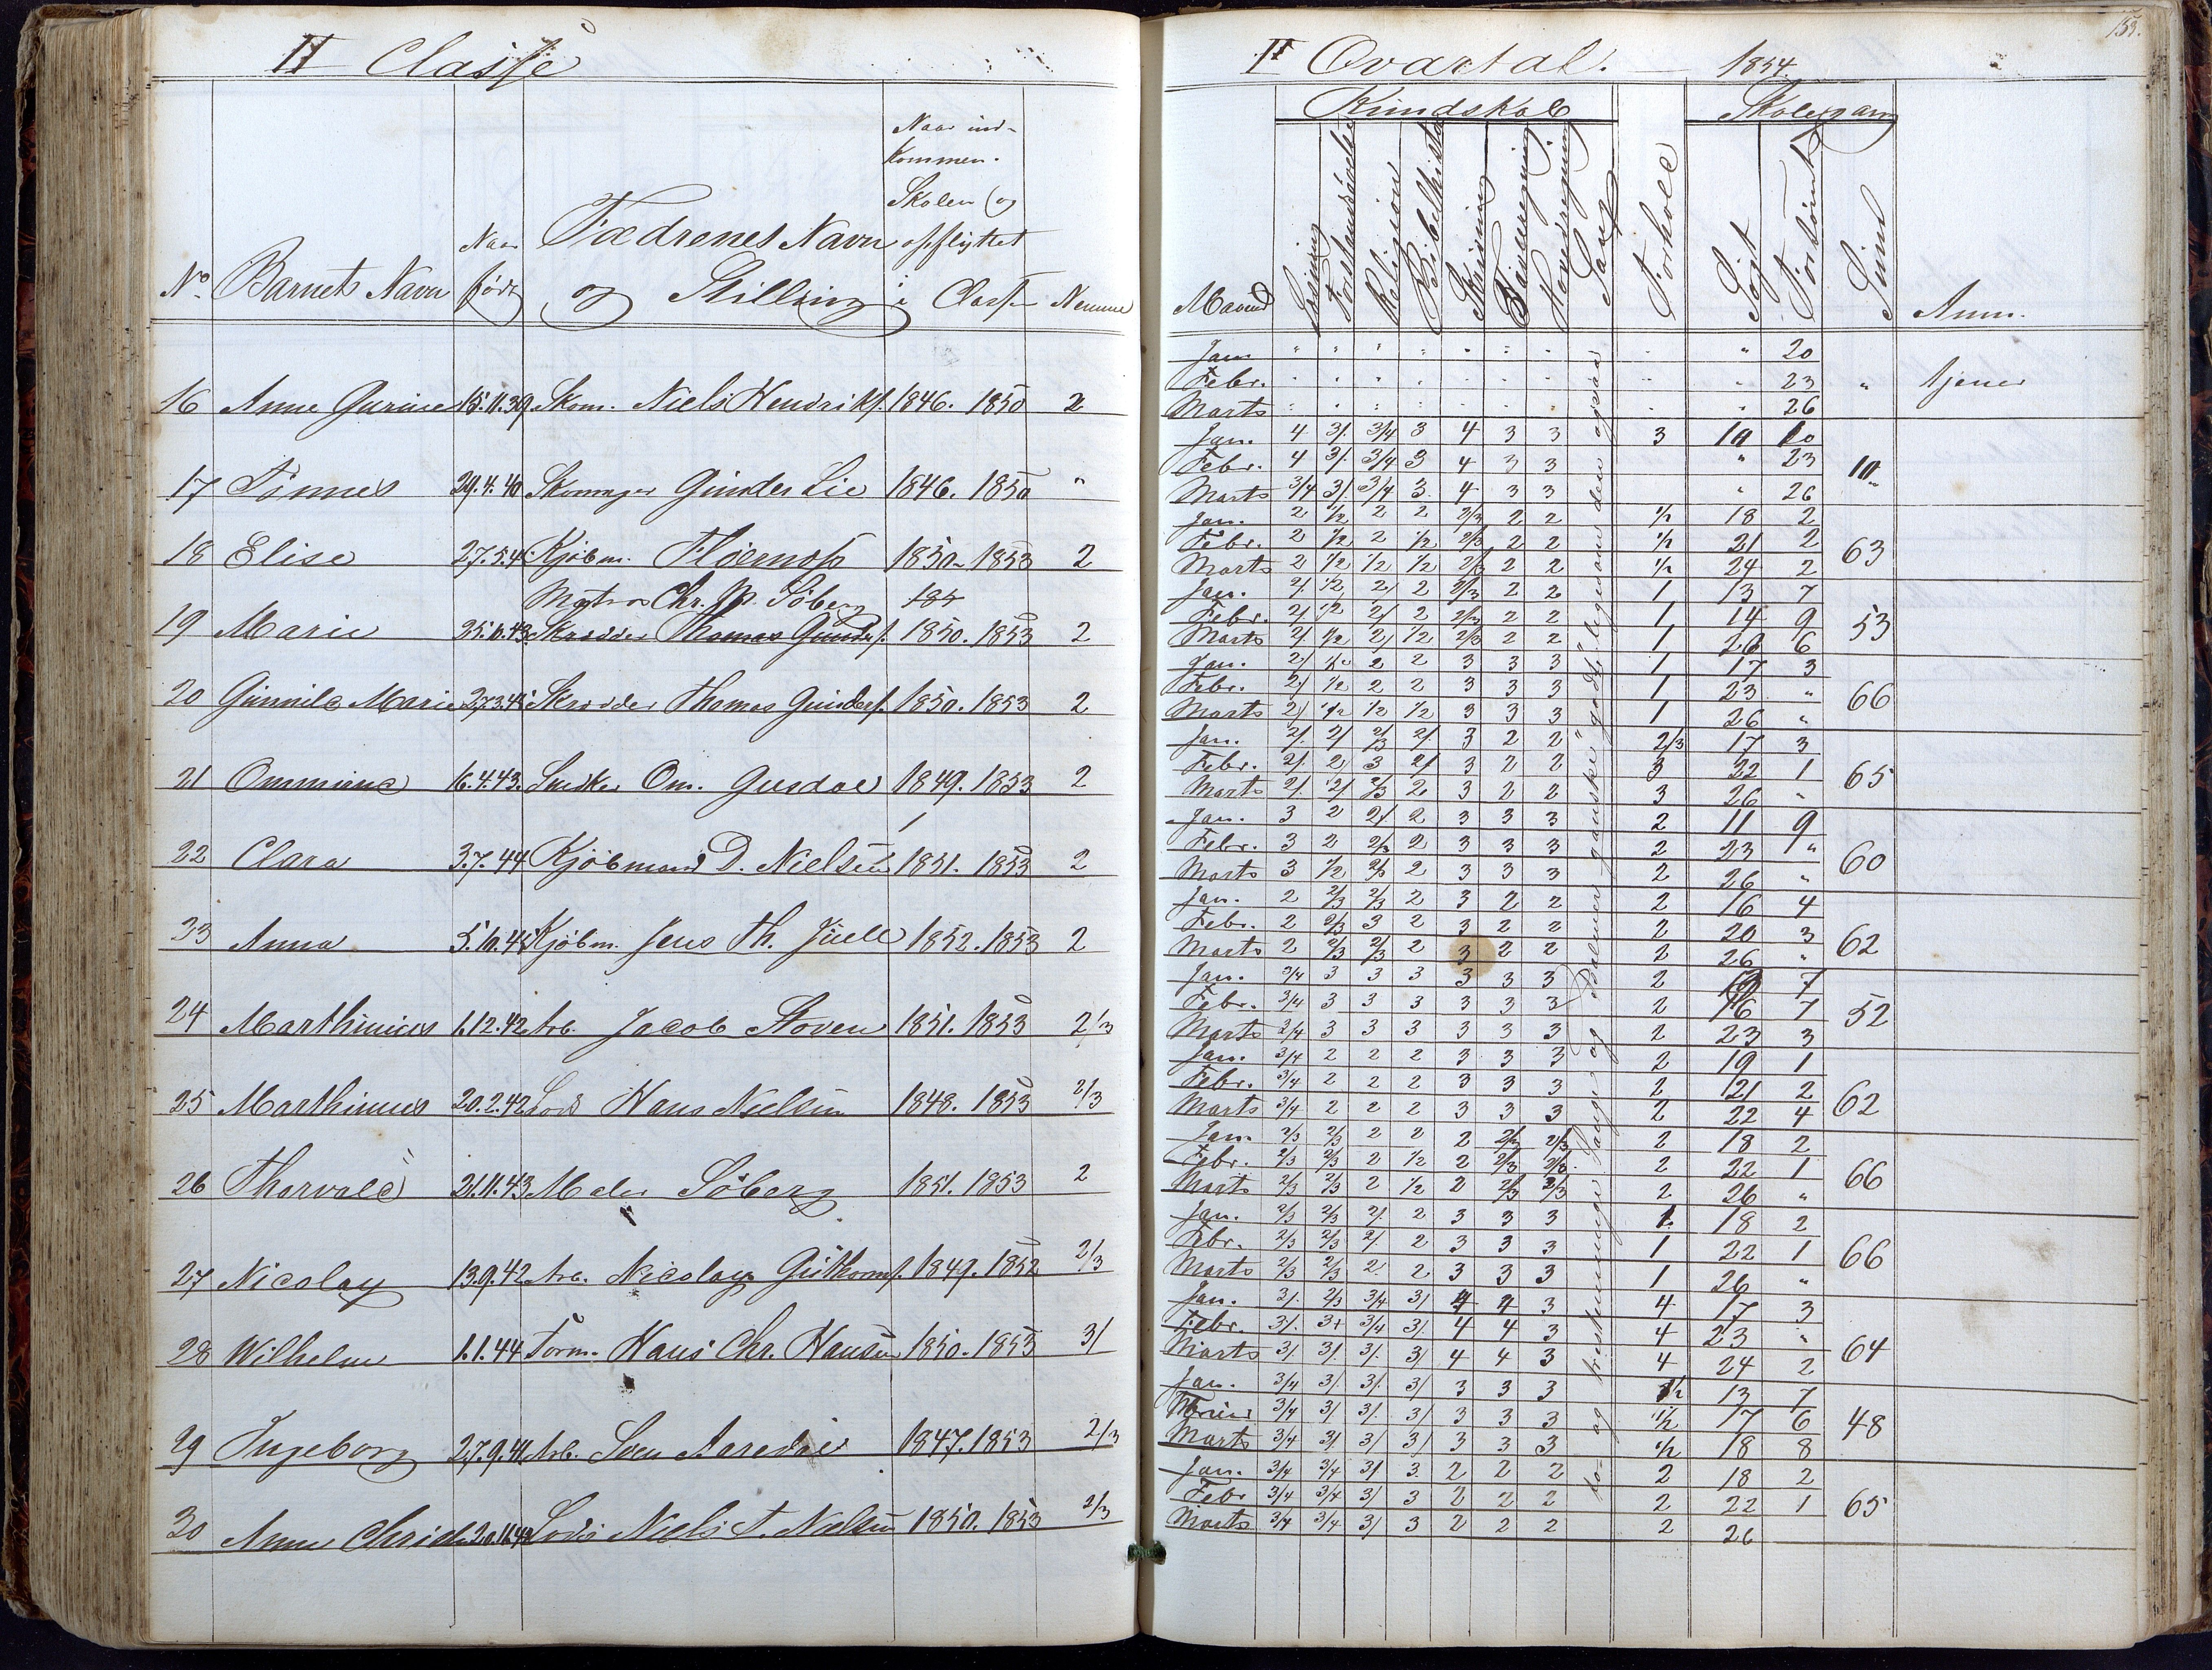 II Classe
No. Barnets Navn Naar født Fædrenes Navn og Stilling Naar ind- kommen. Skolen (og opflyttet i Classen Nemme
16 Anne Gurine 15.11.39. Skom. Niels Hendriks. 1846. 1850 2
17 Tønnes 29.4.40 Skomager Gunder Lie 1846. 1850 "
18 Elise 27.5.4 Kjøbm. 1850. 1853 2
Matros Chr. Søberg
19 Marie 25.6.43 Skrædder Thomas Gunders. 1850. 1853 2
20 Gunnild Marie 27.3.4 Skrædder Thomas Gunders. 1850. 1853 2
21 Ommine 16.4.43. Snedker Om. Gusdal 1849. 1853 2
22 Clara 3.7.44 Kjøbmand D. Nielsen 1851. 1853 2
23 Anna 5.10.4 Kjøbm. Jens Th. Juell 1852. 1853 2
24 Marthinius 1.12.42 Arb. Jacob Skoven 1851. 1853 2/3
25 Marthinius 20.2.42 Lods Hans Nielsen 1848. 1853 2/3
26 Thorvald 21.11.43 Maler Søberg 1851. 1853 2
27 Nicolay 13.9.42 Arb. Nicolay Guthorms. 1849. 1852 2/3
28 Wilhelm 1.1.44 Tørm. Hans Chr. Hansen 1850. 1853 3/
29 Ingeborg 27.9.41 Arb. Sven 1847. 1853 2/3
30 Anne Lods Niels T. Nielsen 1850. 1853 2/3
153.
I Qvartal. 1854.
Kundskab Skolegang
Maaned Læsning Religion Bibelhistorie Skrivning Tavleregning Hovedregning Sang Forhold Søgt Forsømt Sum Anm.
Jan " " " " " " " " " 20
Febr. " " " " " " " " " 23 " tjener
Marts " " " " " " " " " 26
Jan. 4 3/ 3/4 3 4 3 3 3 10 10
Febr. 4 3/ 3/4 3 4 3 3 " 23 10
Marts 3/4 3/ 3/4 3 4 3 3 " 26
Jan. 2 1/2 2 2 2/3 2 2 1/2 18 2
Febr. 2 1/2 2 1/2 2/3 2 2 1/2 21 2 63
Marts 2 1/2 1/2 1/2 2/3 2 2 1/2 24 2
Jan. 2/ 1/2 2/ 2 2/3 2 2 1 13 7
Febr. 2/ 1/2 2/ 2 2/3 2 2 1 14 9 53
Marts 2/ 1/2 2/ 1/2 2/3 2 2 1 26 6
Jan. 2/ 1/2 2 2 3 3 3 1 17 3
Febr. 2/ 1/2 2 2 3 3 3 1 23 " 66
Marts 2/ 1/2 1/2 1/2 3 3 3 1 26 "
Jan. 2/ 2/ 2/3 2/ 3 2 2 2/3 17 3
Febr. 2/ 2 3 2/ 3 2 2 3 22 1 65
Marts 2/ 2/ 2/3 2 3 2 2 3 26 "
Jan. 3 2 2/ 2 3 3 3 2 11 9
Febr. 3 2 2/3 2 3 3 3 2 23 " 60
Marts 3 1/2 2/3 2 3 3 3 2 26 "
Jan. 2 2/3 2/3 2 3 2 2 2 16 4
Febr. 2 2/3 3 2 3 2 2 2 20 3 62
Marts 2 2/3 2/3 2 3 2 2 2 26 "
Jan. 3/4 3 3 3 3 3 3 2 7
Febr. 3/4 3 3 3 3 3 3 2 16 7 52
Marts 3/4 3 3 3 3 3 3 2 23 3
Jan. 3/4 2 2 2 3 3 3 2 19 1
Febr. 3/4 2 2 2 3 3 3 2 21 2 62
Marts 3/4 2 2 2 3 3 3 2 22 4
Jan. 2/3 2/3 2 2 2 2/3 2/3 2 18 2
Febr. 2/3 2/3 2 1/2 2 2/3 2/3 2 22 1 66
Marts 2/3 2/3 2 1/2 2 2/3 2/3 2 26 "
Jan. 2/3 2/3 2/ 2 3 3 3 1 18 2
Febr. 2/3 2/3 2/ 2 3 3 3 1 22 1 66
Marts 2/3 2/3 2 2 3 3 3 1 26 "
Jan. 3/ 2/3 3/4 3/ 4 4 3 4 17 3
Febr. 3/ 3+ 3/4 3/ 4 4 3 4 23 " 64
Marts 3/ 3/ 3/ 3/ 4 4 3 4 24 2
Jan. 3/4 3/ 3/ 3/ 3 3 3 1/2 13 7
3/4 3/ 3/ 3/ 3 3 3 1/2 17 6 48
Marts 3/4 3/ 3/ 3/ 3 3 3 1/2 18 8
Jan. 3/4 3/4 3/ 3 2 2 2 2 18 2
Febr 3/4 3/4 3/ 3 2 2 2 2 22 1 65
Marts 3/4 3/4 3/ 3 2 2 2 2 26
to- og trestemmige Sange og Psalmer ganske godt